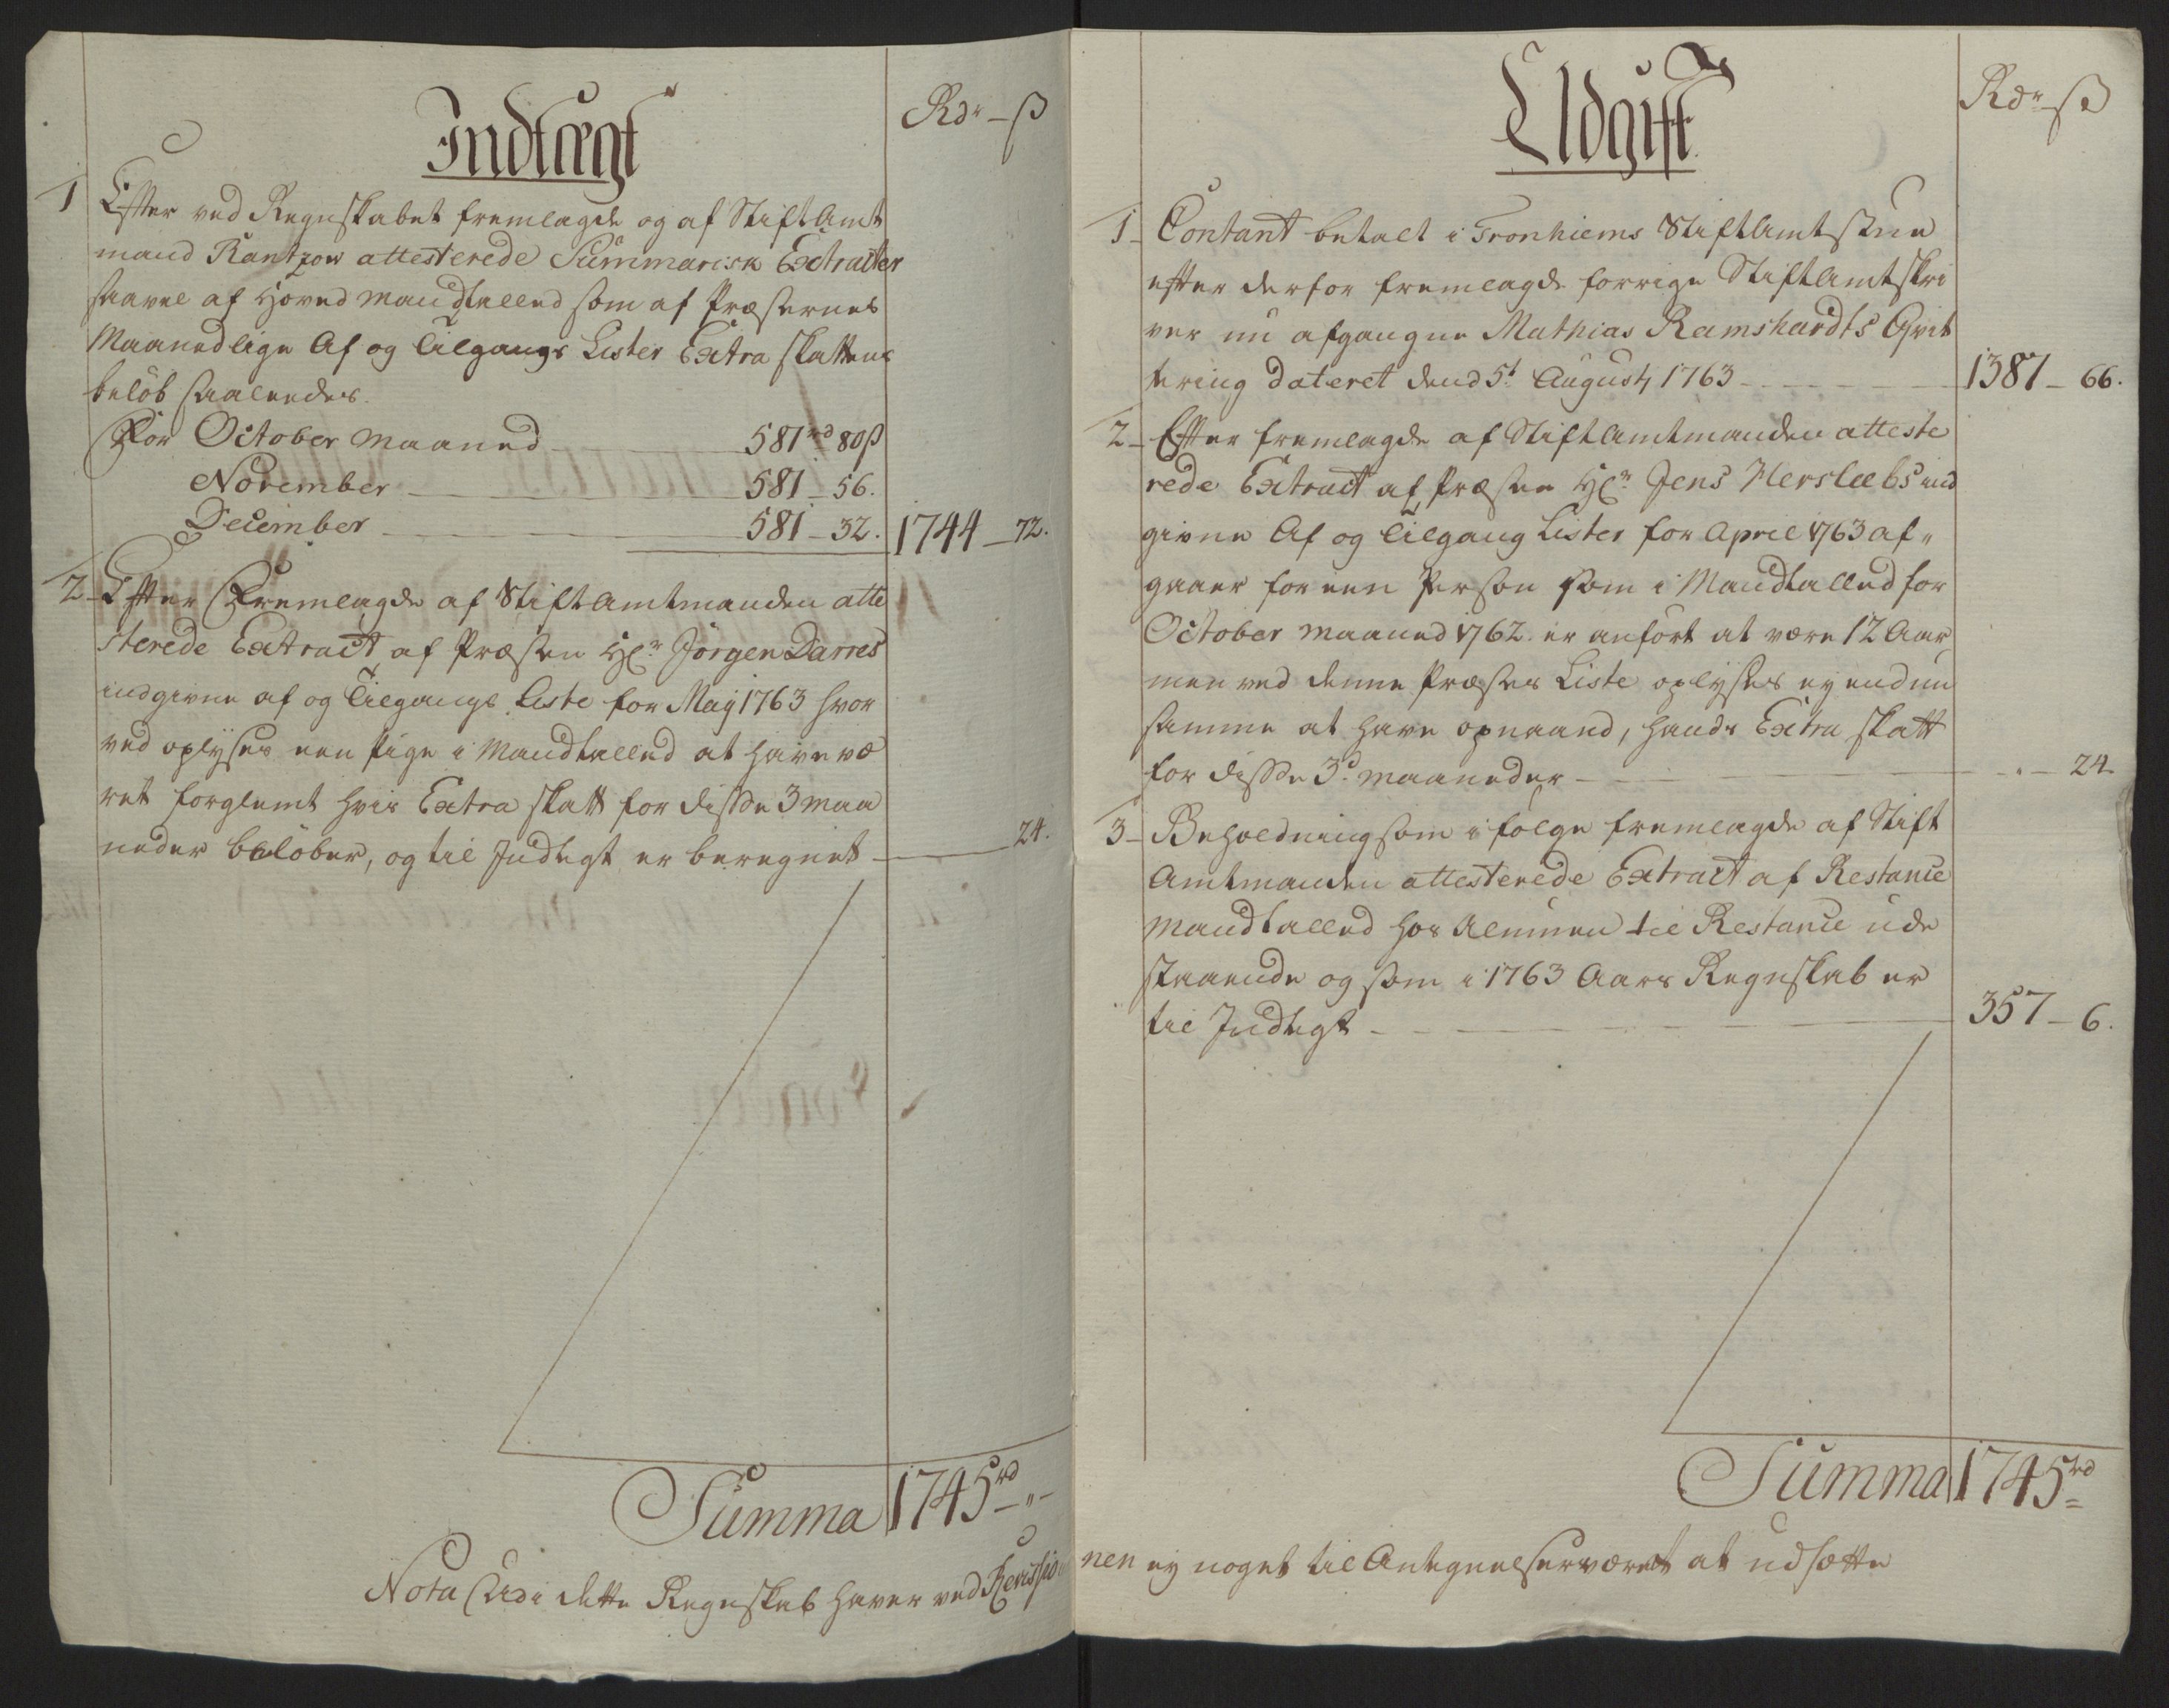 Indtægt
Rdr - ß
1 Efter ved Regnskabet fremlagde og af Stiftamt
mand Rantzow attesterede Summarisk Extracter
saavel af Hoved Mandtalled som af Præsternes
Maanedlige Af og Tilgangs Lister Extra skattens
beløb saaledes.
For October Maaned 581rd 80ß
November 581 - 56.
December 581 - 32. 1744 - 72.
2 Efter Fremlagde af Stiftamtmanden atte
sterede Extract af Præsten Hr Jörgen Darres
indgivne af og Tilgangs Liste for Maÿ 1763 hvor
ved oplyses een pige i Mandtalled at have væ
ret forglemt hvis Extra skatt for disse 3 maa
neder beløber, og til Indtegt er beregnet 24.
Summa 1745rd - " -
Udgift
Rdr - ß
1 Contant betalt i Tronhiems Stiftamtstue
efter derfor fremlagde forrige Stiftamtskri
ver nu afgangne Mathias Ramshardts Qvit
tering dateret dend 5t August 1763 1387 - 66.
2 Efter fremlagde af Stiftamtmanden atteste
rede Extract af Præsten Hr Jens Hersleebs ind
givne Af og Tilgang Lister for April 1763 af"
gaaer for een Person som i Mandtalled for
October Maaned 1762 er anført at være 12 Aar
men ved denne Præstes Liste oplyses ey end nu
samme at have opnaaed, hands Extra skatt
for disse 3de maaneder 24
3 Beholdning som i følge fremlagde af Stift
Amtmanden attesterede Extract af Restance
Mandtalled hos Almuen til Restance ude
staaende og som i 1763 Aars Regnskab er
til Indtegt 357 - 6.
Summa 1745rd
Nota Ved i dette Regnskab haver ved Revissio nen ey noget til Antegnelser været at udsætte